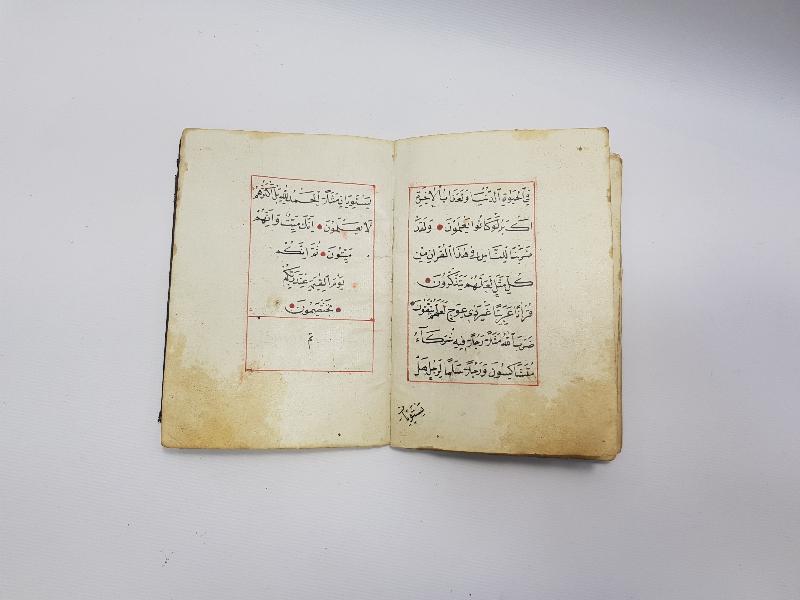 فِي الْحَيَوةِ الدُّنْيَا وَلَعَذَابُ الْاٰخِرَةِ
اَكْبَرُ لَوْ كَانُوا يَعْلَمُونَ وَلَقَدْ
ضَرَبْنَا لِلنَّاسِ فِي هٰذَا الْقُرْاٰنِ مِنْ
كُلِّ مَثَلٍ لَعَلَّهُمْ يَتَذَكَّرُونَ
قُرْاٰنًا عَرَبِيًّا غَيْرَ ذِي عِوَجٍ لَعَلَّهُمْ يَتَّقُونَ
ضَرَبَ اللّٰهُ مَثَلًا رَجُلًا فِيهِ شُرَكَاۤءُ
مُتَشَاكِسُونَ وَرَجُلًا سَلَمًا لِرَجُلٍ هَلْ
يستويان
يَسْتَوِيَانِ مَثَلًا الْحَمْدُ لِلّٰهِ بَلْ اَكْثَرُهُمْ
لَا يَعْلَمُونَ اِنَّكَ مَيِّتٌ وَاِنَّهُمْ
مَيِّتُونَ ثُمَّ اِنَّكُمْ
يَوْمَ الْقِيٰمَةِ عِنْدَ رَبِّكُمْ
تَخْتَصِمُونَ
تم